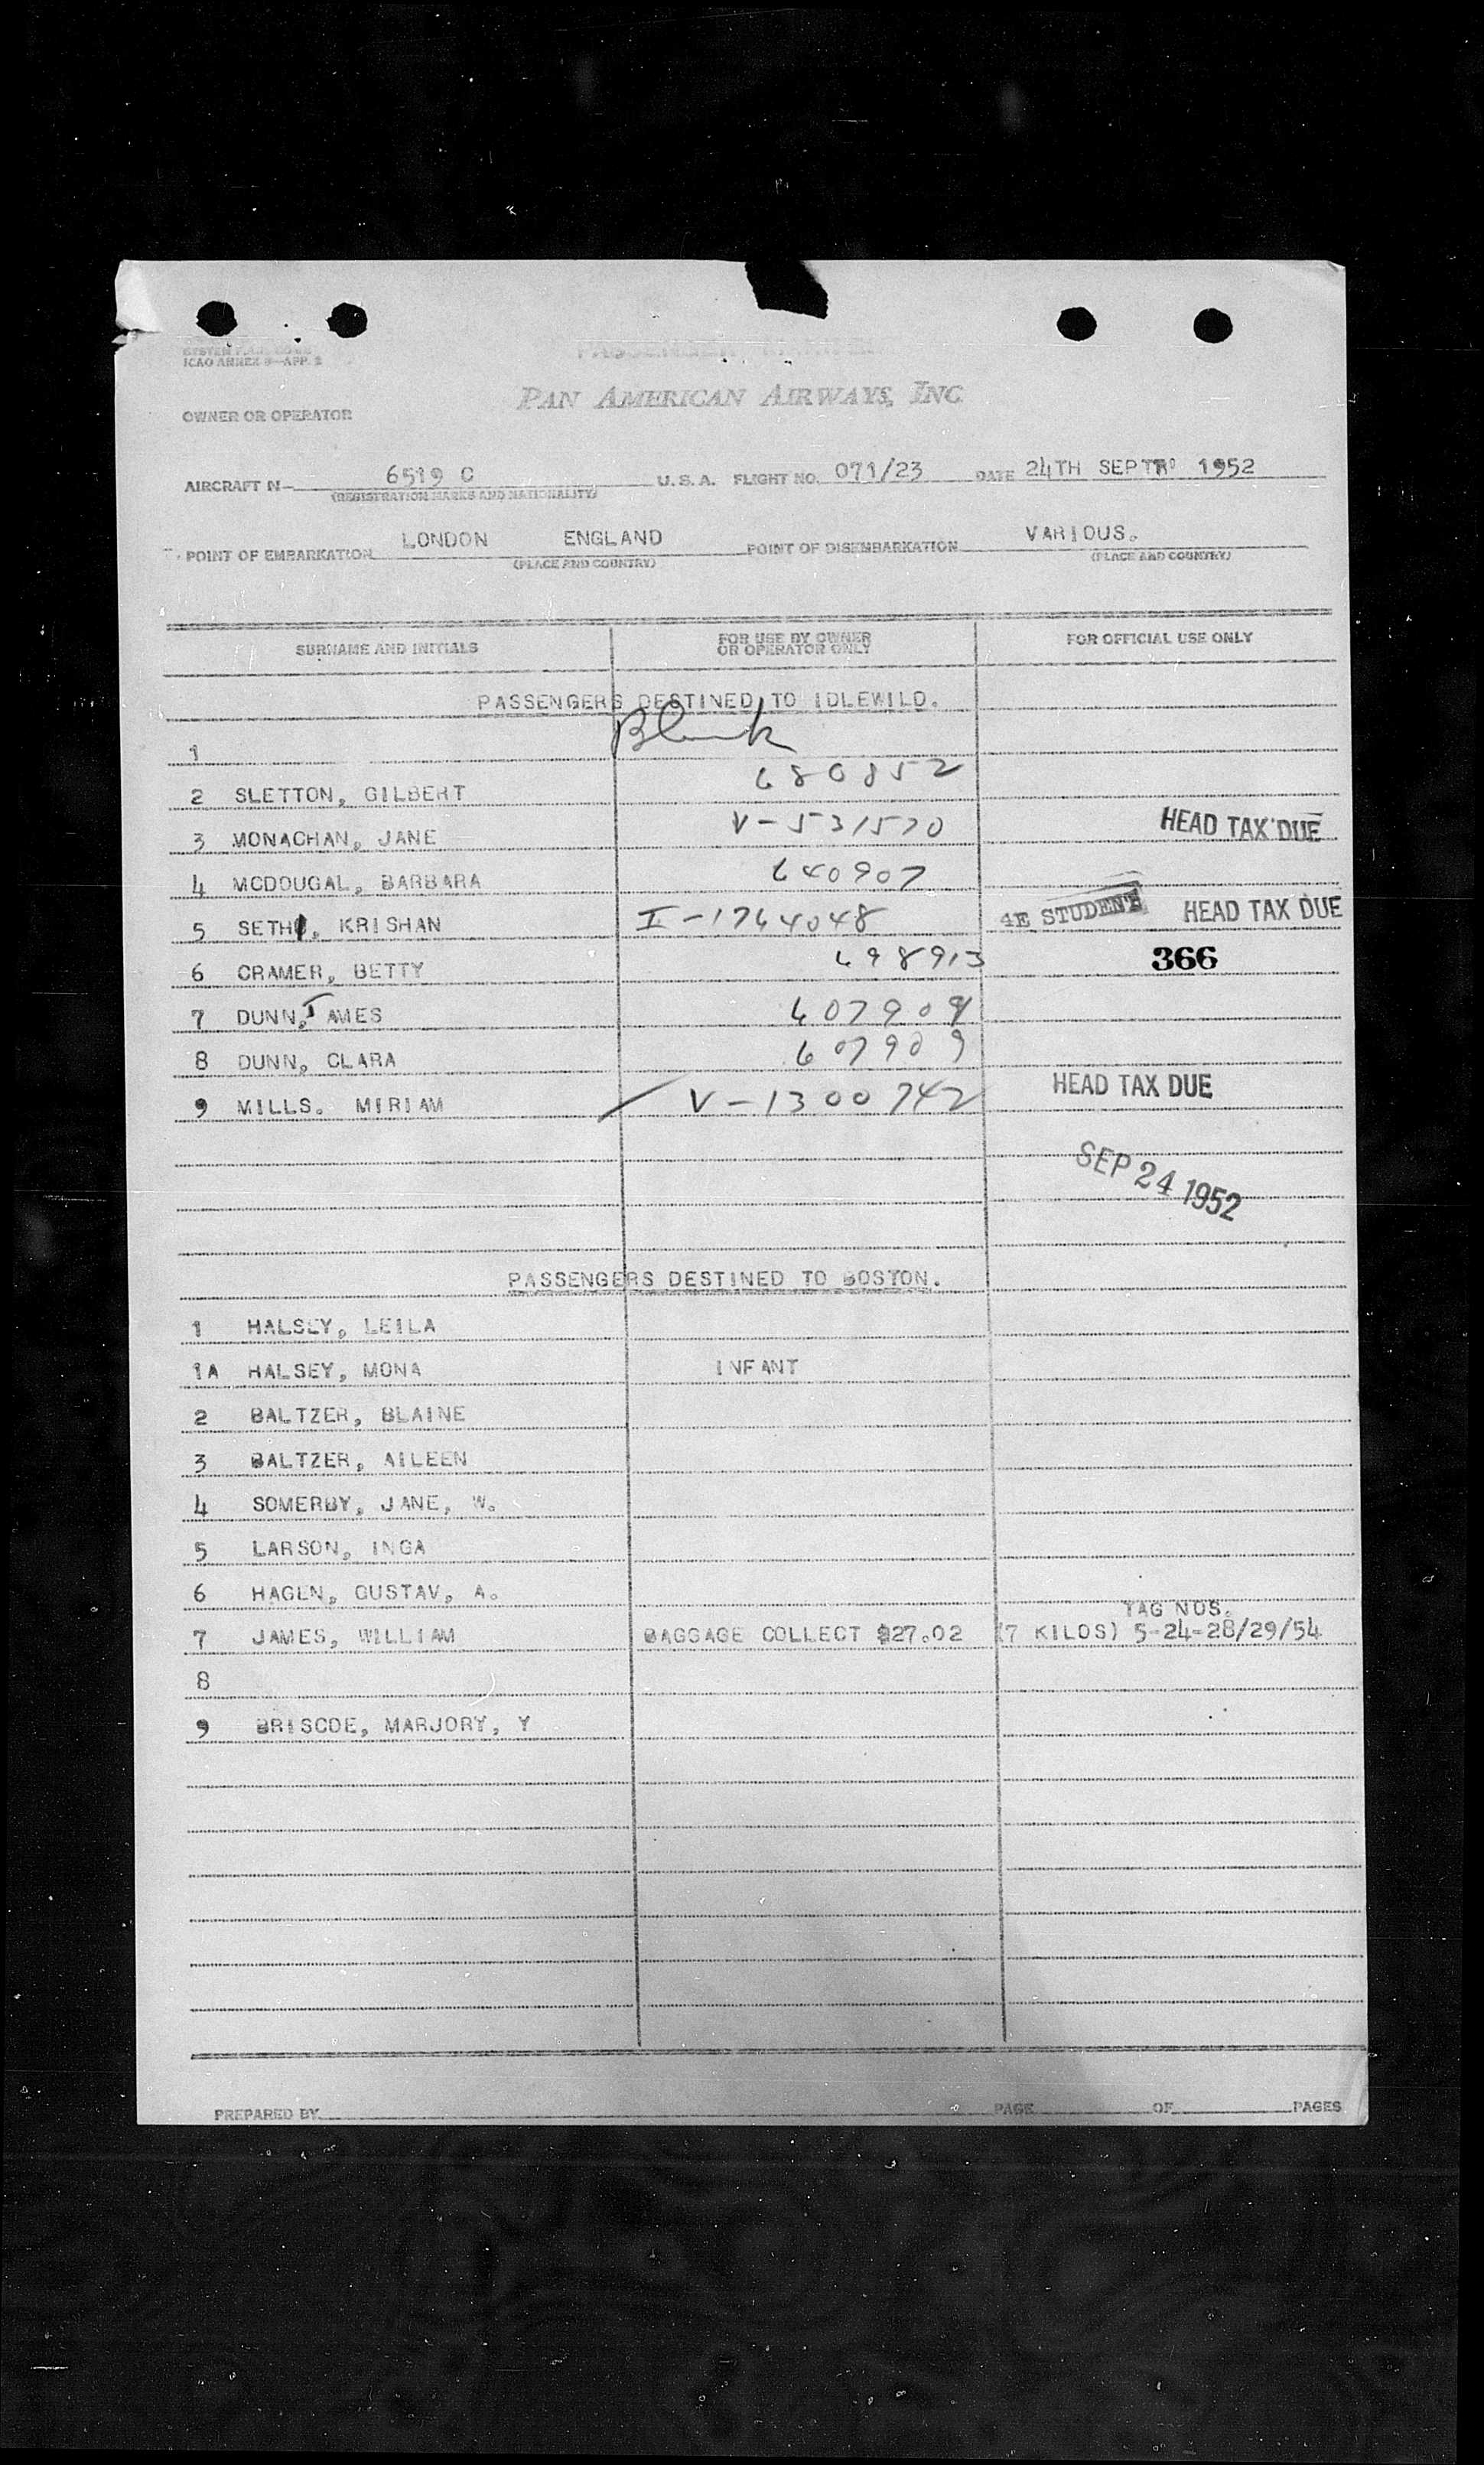 ICAO ANNEX 9—APP. 2
PASSENGER MANIFEST
PAN AMERICAN AIRWAYS, INC.
OWNER OR OPERATOR
AIRCRAFT N— 6519 C U. S. A. FLIGHT NO. 071/23 DATE 24TH SEPTR 1952
(REGISTRATION MARKS AND NATIONALITY)
POINT OF EMBARKATION LONDON ENGLAND POINT OF DISEMBARKATION VARIOUS.
(PLACE AND COUNTRY) (PLACE AND COUNTRY)
SURNAME AND INITIALS FOR USE BY OWNER OR OPERATOR ONLY FOR OFFICIAL USE ONLY
PASSENGERS DESTINED TO IDLEWILD.
1 Blank
2 SLETTON, GILBERT 680852
3 MONACHAN, JANE V-531570 HEAD TAX DUE
4 MCDOUGAL, BARBARA 640907
5 SETHI, KRISHAN I-1764048 4E STUDENT HEAD TAX DUE
6 CRAMER, BETTY 698913 366
7 DUNN, JAMES 607909
8 DUNN, CLARA 607909
9 MILLS. MIRIAM V-1300742 HEAD TAX DUE
SEP 24 1952
PASSENGERS DESTINED TO BOSTON.
1 HALSEY, LEILA
1A HALSEY, MONA INFANT
2 BALTZER, BLAINE
3 BALTZER, AILEEN
4 SOMERBY, JANE, W.
5 LARSON, INGA
6 HAGEN, GUSTAV, A.
TAG NOS.
7 JAMES, WILLIAM BAGGAGE COLLECT $27.02 (7 KILOS) 5-24-28/29/54
8
9 BRISCOE, MARJORY, Y
PREPARED BY PAGE OF PAGES